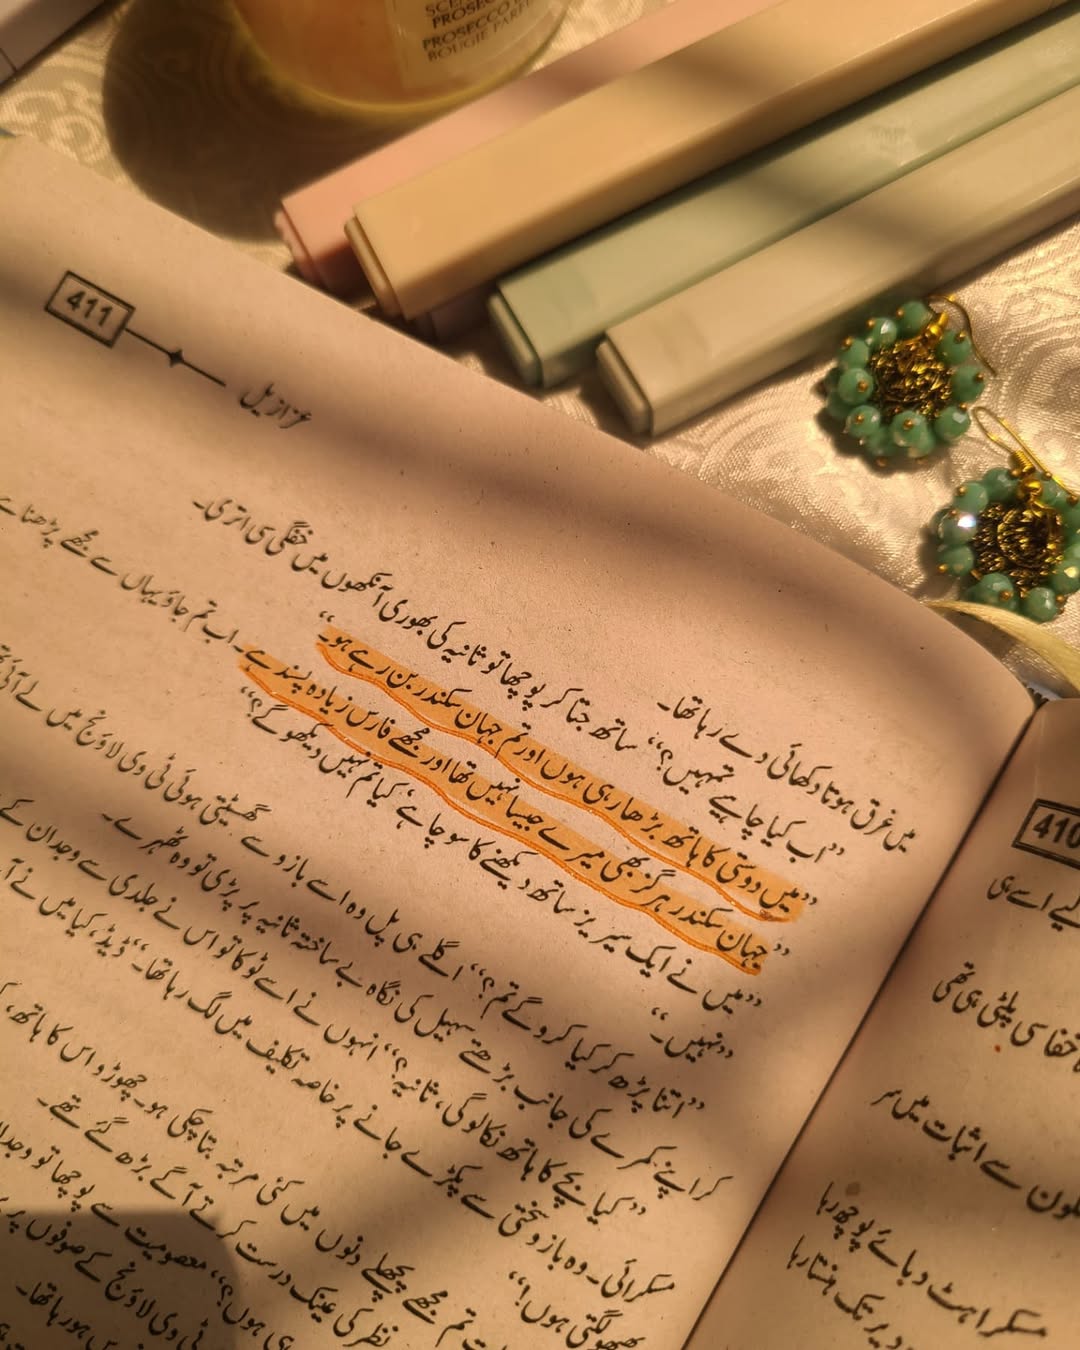 SCE
PROSEC
PROSECCO
BOUGIE PARF
411
عزازیل
میں غرق ہوتا دکھائی دے رہا تھا۔
”اب کیا چاہیے تمہیں؟“ ساتھ جتا کر پوچھا تو ثانیہ کی بھوری آنکھوں میں خفگی سی اتری۔
”میں دوستی کا ہاتھ بڑھا رہی ہوں اور تم جہان سکندر بن رہے ہو۔“
”جہان سکندر ہرگز بھی میرے جیسا نہیں تھا اور مجھے فارس زیادہ پسند ہے۔ اب تم جاؤ یہاں سے مجھے پڑھنا ہے
”میں نے ایک سیریز ساتھ دیکھنے کا سوچا ہے، کیا تم نہیں دیکھو گے؟“
”نہیں۔“
”اتنا پڑھ کر کیا کرو گے تم؟“ اگلے ہی پل وہ اسے بازو سے گھسیٹتی ہوئی ٹی وی لاؤنج میں لے آئی
کر اپنے کمرے کی جانب بڑھتے سہیل کی نگاہ بے ساختہ ثانیہ پر پڑی تو وہ ٹھہرے۔
”کیا بچے کا ہاتھ نکالو گی، ثانیہ؟“ انہوں نے اسے ٹوکا تو اس نے جلدی سے وجدان کے
مسکرائی۔ وہ بازو سختی سے پکڑے جانے پر خاصہ تکلیف میں لگ رہا تھا۔ ”ڈیڈ، کیا میں نے
بھگتی ہوں!“
تم مجھے پچھلے دنوں میں کئی مرتبہ بتا چکی ہو۔ چھوڑو اس کا ہاتھ،
نظر کی عینک درست کرتے آگے بڑھ گئے تھے۔
ہی ہوں؟“ معصومیت سے پوچھا تو
ٹی وی لاؤنج کے صوفوں پر
ہو رہا تھا۔
410
لیے اسے ہی
خفا سی پلٹی ہی تھی
سے اثبات میں سر
مسکراہٹ دبائے پوچھ رہا
دیر تک ہنستا رہا